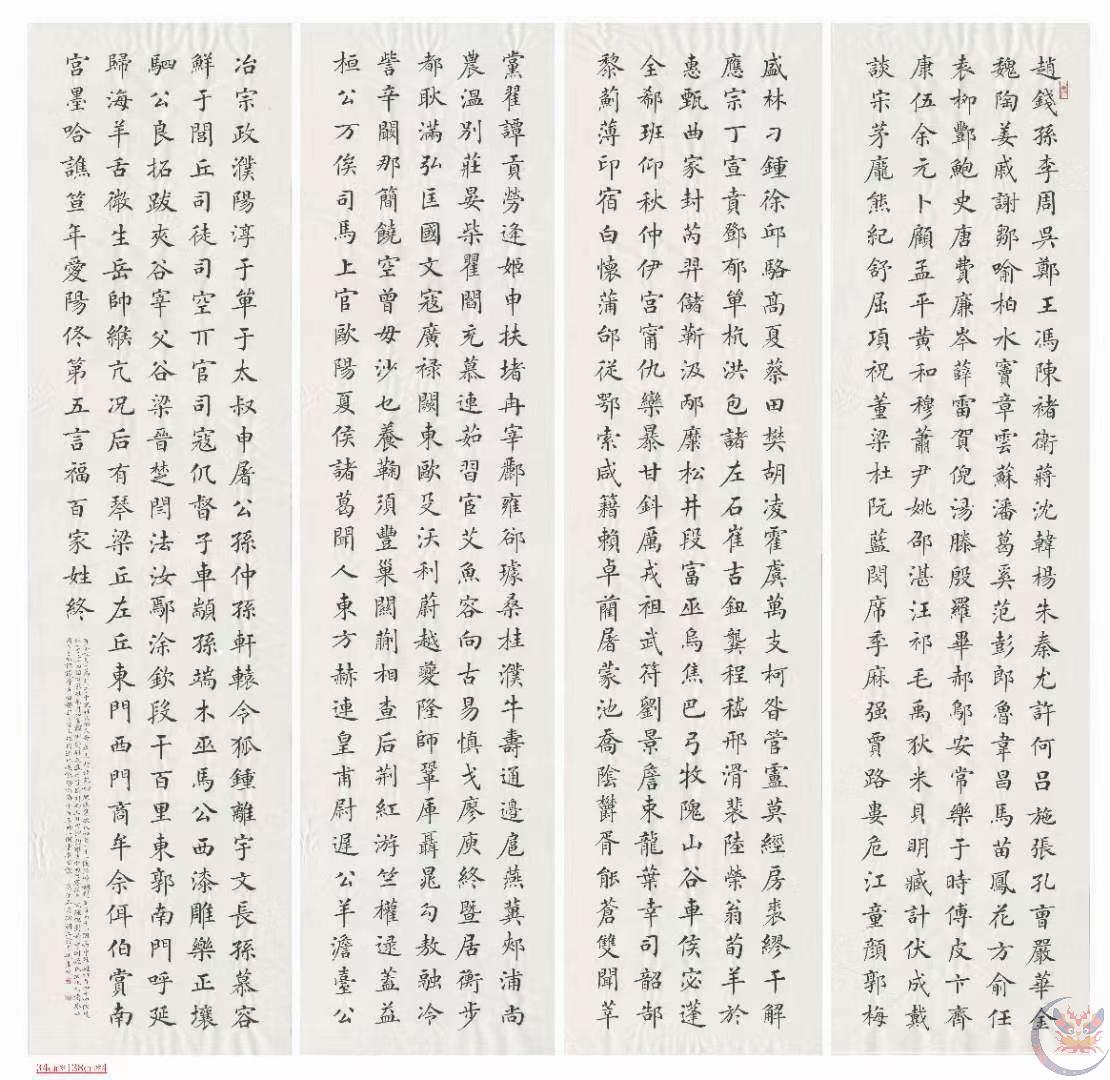 趙錢孫李周吳鄭王馮陳褚衛蔣沈韓楊朱秦尤許何吕施張孔曹嚴華金
魏陶姜戚謝鄒喻柏水竇章雲蘇潘葛奚范彭郎魯韋昌馬苗鳳花方俞任
袁柳酆鮑史唐費廉岑薛雷賀倪湯滕殷羅畢郝鄔安常樂于時傅皮卞齊
康伍余元卜顧孟平黄和穆蕭尹姚邵湛汪祁毛禹狄米貝明臧計伏成戴
談宋茅龐熊紀舒屈項祝董梁杜阮藍閔席季麻强賈路婁危江童顔郭梅
盛林刁鍾徐邱駱高夏蔡田樊胡凌霍虞萬支柯昝管盧莫經房裘繆干解
應宗丁宣賁鄧郁單杭洪包諸左石崔吉鈕龔程嵇邢滑裴陸榮翁荀羊於
惠甄曲家封芮羿儲靳汲邴糜松井段富巫烏焦巴弓牧隗山谷車侯宓蓬
全郗班仰秋仲伊宫甯仇欒暴甘斜厲戎祖武符劉景詹束龍葉幸司韶郜
黎薊薄印宿白懷蒲邰從鄂索咸籍賴卓藺屠蒙池喬陰鬱胥能蒼雙聞莘
黨翟譚貢勞逄姬申扶堵冉宰酈雍郤璩桑桂濮牛壽通邊扈燕冀郟浦尚
農温别莊晏柴瞿閻充慕連茹習宦艾魚容向古易慎戈廖庾終暨居衡步
都耿滿弘匡國文寇廣禄闕東歐殳沃利蔚越夔隆師鞏厙聶晁勾敖融冷
訾辛闞那簡饒空曾毋沙乜養鞠須豐巢關蒯相查后荆紅游竺權逯蓋益
桓公万俟司馬上官歐陽夏侯諸葛聞人東方赫連皇甫尉遲公羊澹臺公
冶宗政濮陽淳于單于太叔申屠公孫仲孫軒轅令狐鍾離宇文長孫慕容
鮮于閭丘司徒司空丌官司寇仉督子車顓孫端木巫馬公西漆雕樂正壤
駟公良拓跋夾谷宰父谷梁晉楚閆法汝鄢涂欽段干百里東郭南門呼延
歸海羊舌微生岳帥緱亢况后有琴梁丘左丘東門西門商牟佘佴伯賞南
宫墨哈譙笪年愛陽佟第五言福百家姓終
34cm*138cm*4